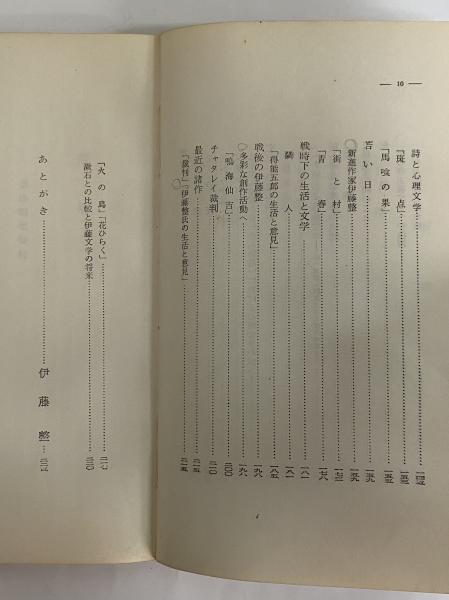 — 10 —
詩と心理文学……一四五
「斑点」……一五三
「馬喰の果」……一五五
若い日……一五九
新進作家伊藤整……一五九
「街と村」……一七三
「青春」……一七八
戦時下の生活と文学……一八一
「隣人」……一八一
「得能五郎の生活と意見」……一八五
戦後の伊藤整……一九八
多彩な創作活動へ……一九八
「鳴海仙吉」……二〇〇
チャタレイ裁判……二一〇
最近の諸作……二一五
「裁判」「伊藤整氏の生活と意見」……二一五
「火の鳥」「花ひらく」……二一七
漱石との比較と伊藤文学の将来……二二〇
あとがき……伊藤整…二二五